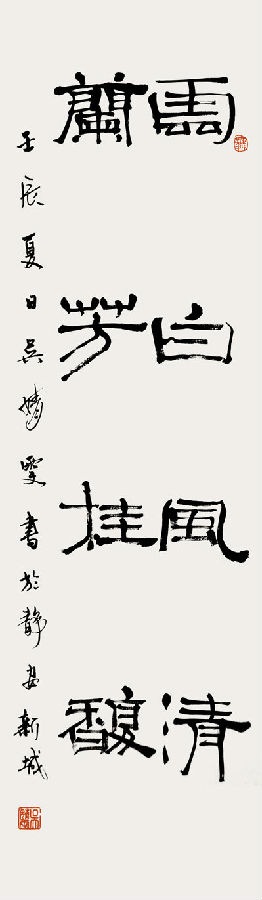 雲白風清
蘭芳桂馥
壬辰夏日吴婧雯書於静安新城